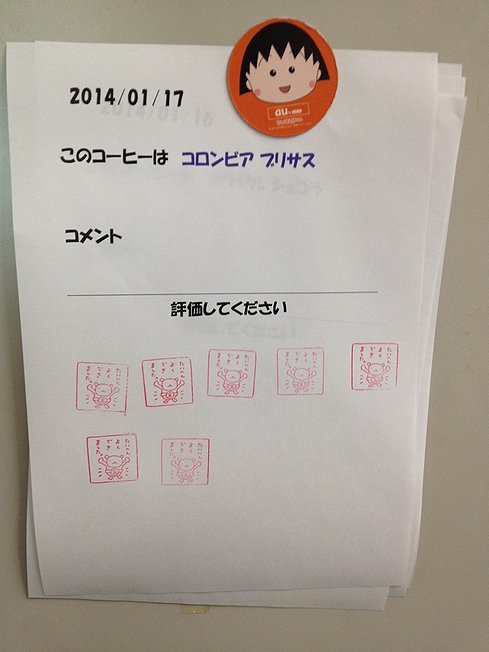 2014/01/17
au
このコーヒーは コロンビア ブリサス
コメント
評価してください
たいへん よく できました。
たいへん よく できました。
たいへん よく できました。
たいへん よく できました。
たいへん よく できました。
たいへん よく できました。
たいへん よく できました。